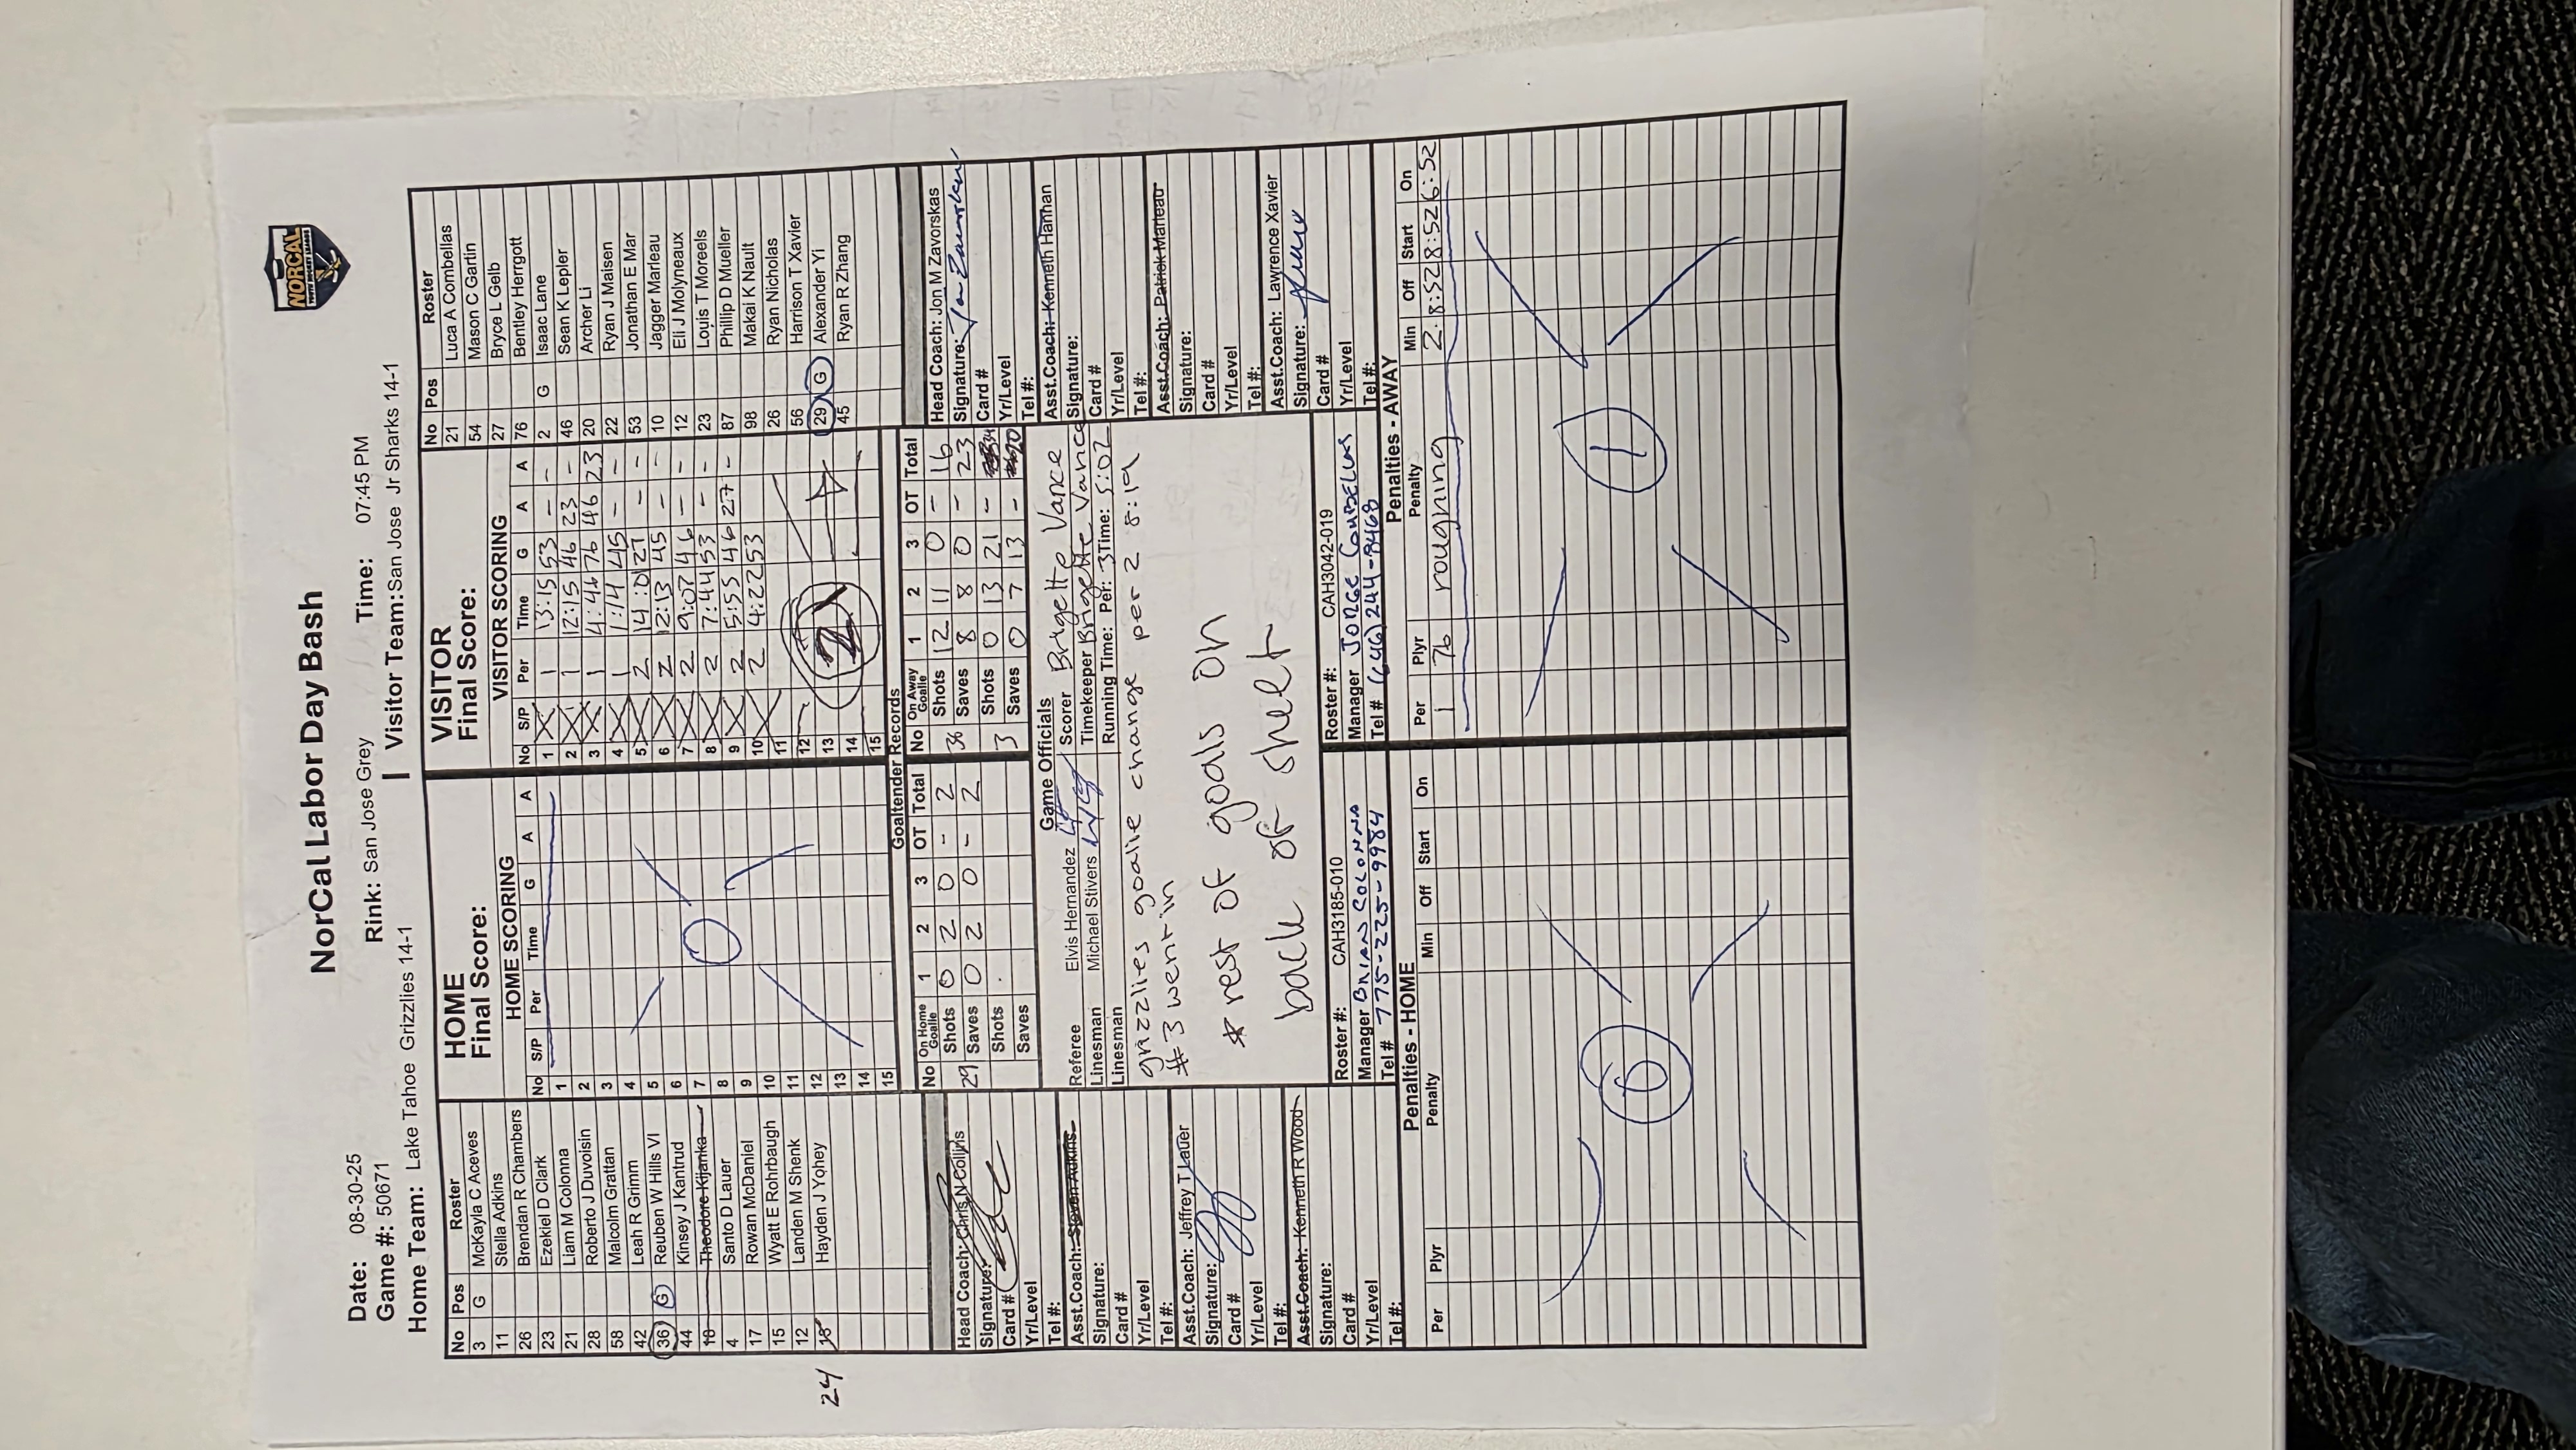 NorCal Labor Day Bash
NORCAL
Date: 08-30-25 Rink: San Jose Grey Time: 07:45 PM
Game #: 50671
Home Team: Lake Tahoe Grizzlies 14-1 | Visitor Team: San Jose Jr Sharks 14-1
No Pos Roster
3 G McKayla C Aceves
11 Stella Adkins
26 Brendan R Chambers
23 Ezekiel D Clark
21 Liam M Colonna
28 Roberto J Duvoisin
58 Malcolm Grattan
42 Leah R Grimm
36 G Reuben W Hills VI
44 Kinsey J Kantrud
18 Theodore Kijanka
4 Santo D Lauer
17 Rowan McDaniel
15 Wyatt E Rohrbaugh
12 Landen M Shenk
24 18 Hayden J Yohey
HOME
Final Score:
HOME SCORING
No S/P Per Time G A A
1
2
3
4
5
6
7
8
9
10
11
12
13
14
15
0
VISITOR
Final Score:
VISITOR SCORING
No S/P Per Time G A A
1 X 1 13:15 53 - -
2 X 1 12:15 46 23 -
3 X 1 4:46 76 46 23
4 X 1 1:14 45 - -
5 X 2 14:01 27 - -
6 X 2 12:13 45 - -
7 X 2 9:07 46 - -
8 X 2 7:44 53 - -
9 X 2 5:55 46 27 -
10 X 2 4:22 53
11
12
13
14
15
No Pos Roster
21 Luca A Combellas
54 Mason C Gartin
27 Bryce L Gelb
76 Bentley Herrgott
2 G Isaac Lane
46 Sean K Lepler
20 Archer Li
22 Ryan J Maisen
53 Jonathan E Mar
10 Jagger Marleau
12 Eli J Molyneaux
23 Louis T Moreels
87 Phillip D Mueller
98 Makai K Nault
26 Ryan Nicholas
56 Harrison T Xavier
29 G Alexander Yi
45 Ryan R Zhang
Goaltender Records
No On Home Goalie 1 2 3 OT Total
29 Shots 0 2 0 - 2
Saves 0 2 0 - 2
Shots
Saves
No On Away Goalie 1 2 3 OT Total
36 Shots 12 11 0 - 16
Saves 8 8 0 - 23
3 Shots 0 13 21 -
Saves 0 7 13 -
Head Coach: Chris N Collins
Signature:
Card #
Yr/Level
Tel #:
Asst.Coach: Steven Adkins
Signature:
Card #
Yr/Level
Tel #:
Asst.Coach: Jeffrey T Lauer
Signature:
Card #
Yr/Level
Tel #:
Asst.Coach: Kenneth R Wood
Signature:
Card #
Yr/Level
Tel #:
Game Officials
Referee Elvis Hernandez
Linesman Michael Stivers
Linesman
Scorer Brigette Vance
Timekeeper Brigette Vance
Running Time: Per: 3 Time: 5:02
grizzlies goalie change per 2 8:19
#3 went in
* rest of goals on
back of sheet
Head Coach: Jon M Zavorskas
Signature: Jon Zavorskas
Card #
Yr/Level
Tel #:
Asst.Coach: Kenneth Hannan
Signature:
Card #
Yr/Level
Tel #:
Asst.Coach: Patrick Marleau
Signature:
Card #
Yr/Level
Tel #:
Asst.Coach: Lawrence Xavier
Signature:
Card #
Yr/Level
Tel #:
Roster #: CAH3185-010
Manager BRIAN COLONNA
Tel # 775-225-9984
Roster #: CAH3042-019
Manager JORGE COMBELLAS
Tel # (646) 244-8468
Penalties - HOME
Per Plyr Penalty Min Off Start On
Penalties - AWAY
Per Plyr Penalty Min Off Start On
1 76 roughing 2 8:52 8:52 6:52
1